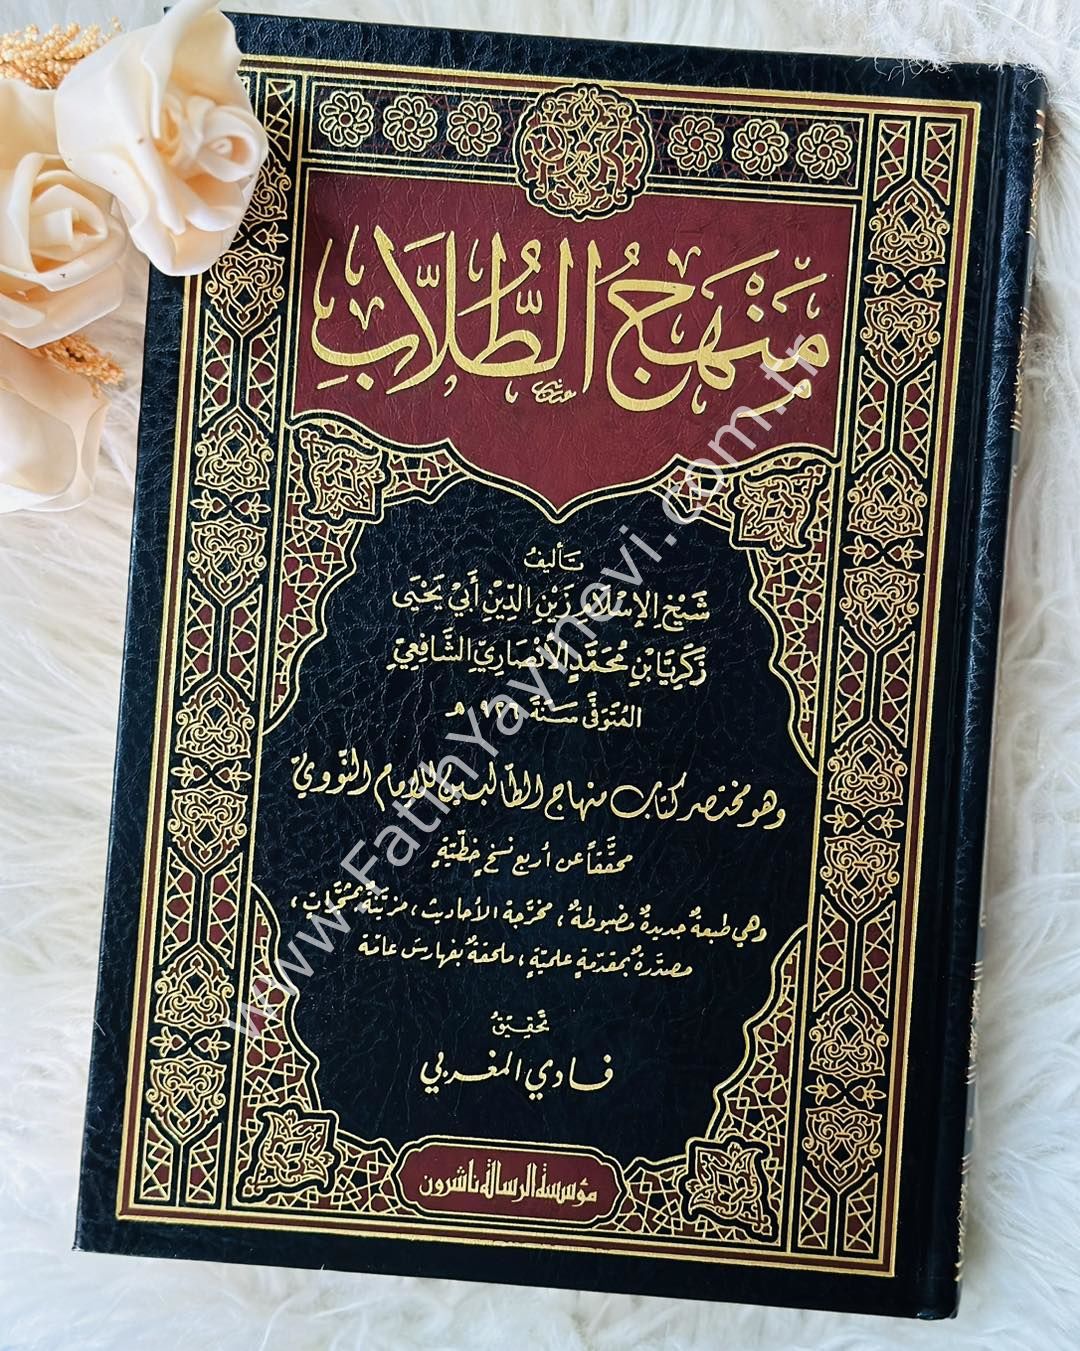 مَنْهَجُ الطُّلَّابِ
تَأليفُ
شَيْخِ الإِسْلَامِ زَيْنِ الدِّيْنِ أَبِيْ يَحْيَى
زَكَرِيَّا بْنِ مُحَمَّدٍ الأَنْصَارِيِّ الشَّافِعِيِّ
المُتَوَفَّى سَنَةَ ٩٢٦ هـ
وهو مختصر كتاب منهاج الطّالبين للإمام النّوويّ
محقَّقاً عن أربع نسخٍ خطّيّةٍ
وهي طبعةٌ جديدةٌ مضبوطةٌ، مخرّجة الأحاديث، مزيّنةٌ بمشجّرات،
مصدّرةٌ بمقدّمةٍ علميّةٍ، ملحقةٌ بفهارسَ عامّة
تَحْقِيقُ
فادي المغربي
مؤسسة الرسالة ناشرون
www.FatihYayinevi.com.tr